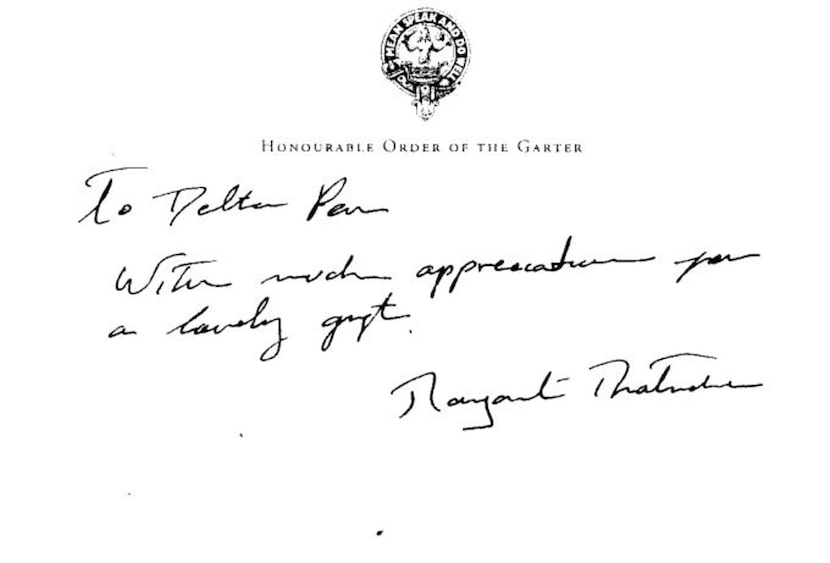 MEAN SPEAK AND DO WELL
HONOURABLE ORDER OF THE GARTER
To Delta Pen
With much appreciation for
a lovely gift.
Margaret Thatcher